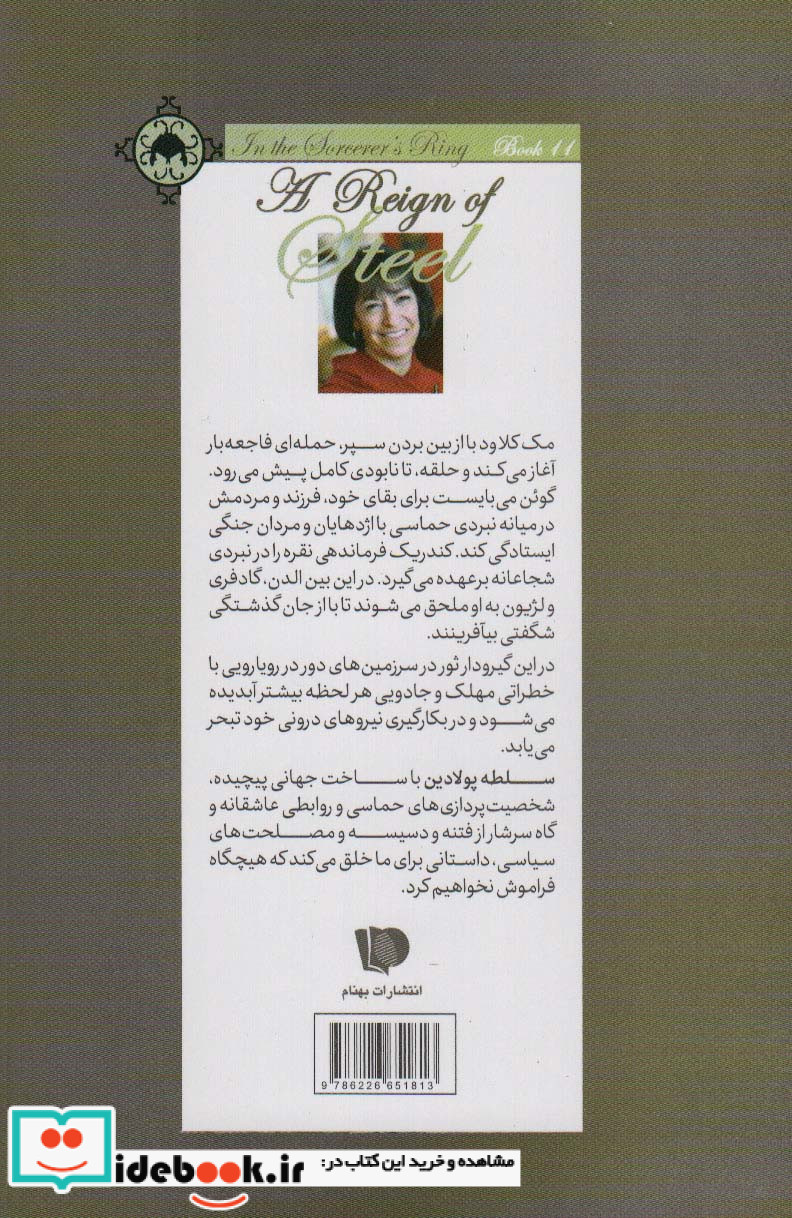 In the Sorcerer's Ring Book 11
A Reign of
Steel
مک کلاود با از بین بردن سپر، حمله‌ای فاجعه‌بار
آغاز می‌کند و حلقه، تا نابودی کامل پیش می‌رود.
گوئن می‌بایست برای بقای خود، فرزند و مردمش
در میانه نبردی حماسی با اژدهایان و مردان جنگی
ایستادگی کند. کندریک فرماندهی نقره را در نبردی
شجاعانه بر عهده می‌گیرد. در این بین الدن، گادفری
و لژیون به او ملحق می‌شوند تا با از جان گذشتگی
شگفتی بیآفرینند.
در این گیرودار ثور در سرزمین‌های دور در رویارویی با
خطراتی مهلک و جادویی هر لحظه بیشتر آبدیده
می‌شود و در بکارگیری نیروهای درونی خود تبحر
می‌یابد.
سلطه پولادین با ساخت جهانی پیچیده،
شخصیت‌پردازی‌های حماسی و روابطی عاشقانه و
گاه سرشار از فتنه و دسیسه و مصلحت‌های
سیاسی، داستانی برای ما خلق می‌کند که هیچگاه
فراموش نخواهیم کرد.
انتشارات بهنام
9 786226 651813
مشاهده و خرید این کتاب در:
idebook.ir